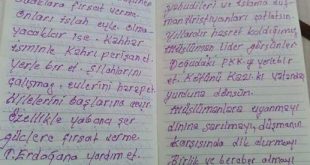 fırsat verme.
Onları islah eyle. Olma
yacaklar ise - Kahhar
isminle Kahrı perişan et.
Yerle bir et. Silahlarını
çalışmaz, evlerini harap et.
Hilelerini başlarına
Özellikle yabancı
güçlere fırsat verme.
T. Erdoğana yardım et.
yahudileri ve islama
man hıristiyanları
Yıllardır hasret kaldığımız
Müslüman lider
Doğudaki PKK yı yerle bir
et. Kökünü Kazı ki
yurduna dönsün.
Müslümanlara uyanmayı
dinine sarılmayı, düşmanın
karşısında dik durmayı
Birlik ve beraber olmayı